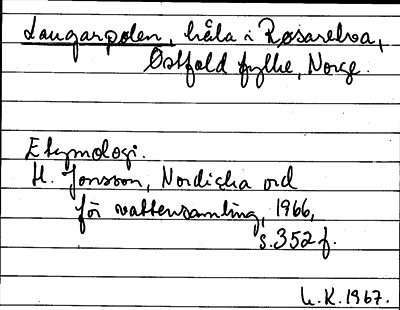 Laugarpølen, håla i Rosarelva,
Østfold fylke, Norge.
Etymologi.
H. Jonsson, Nordiska ord
för vattensamling, 1966,
s. 352 f.
L.K. 1967.